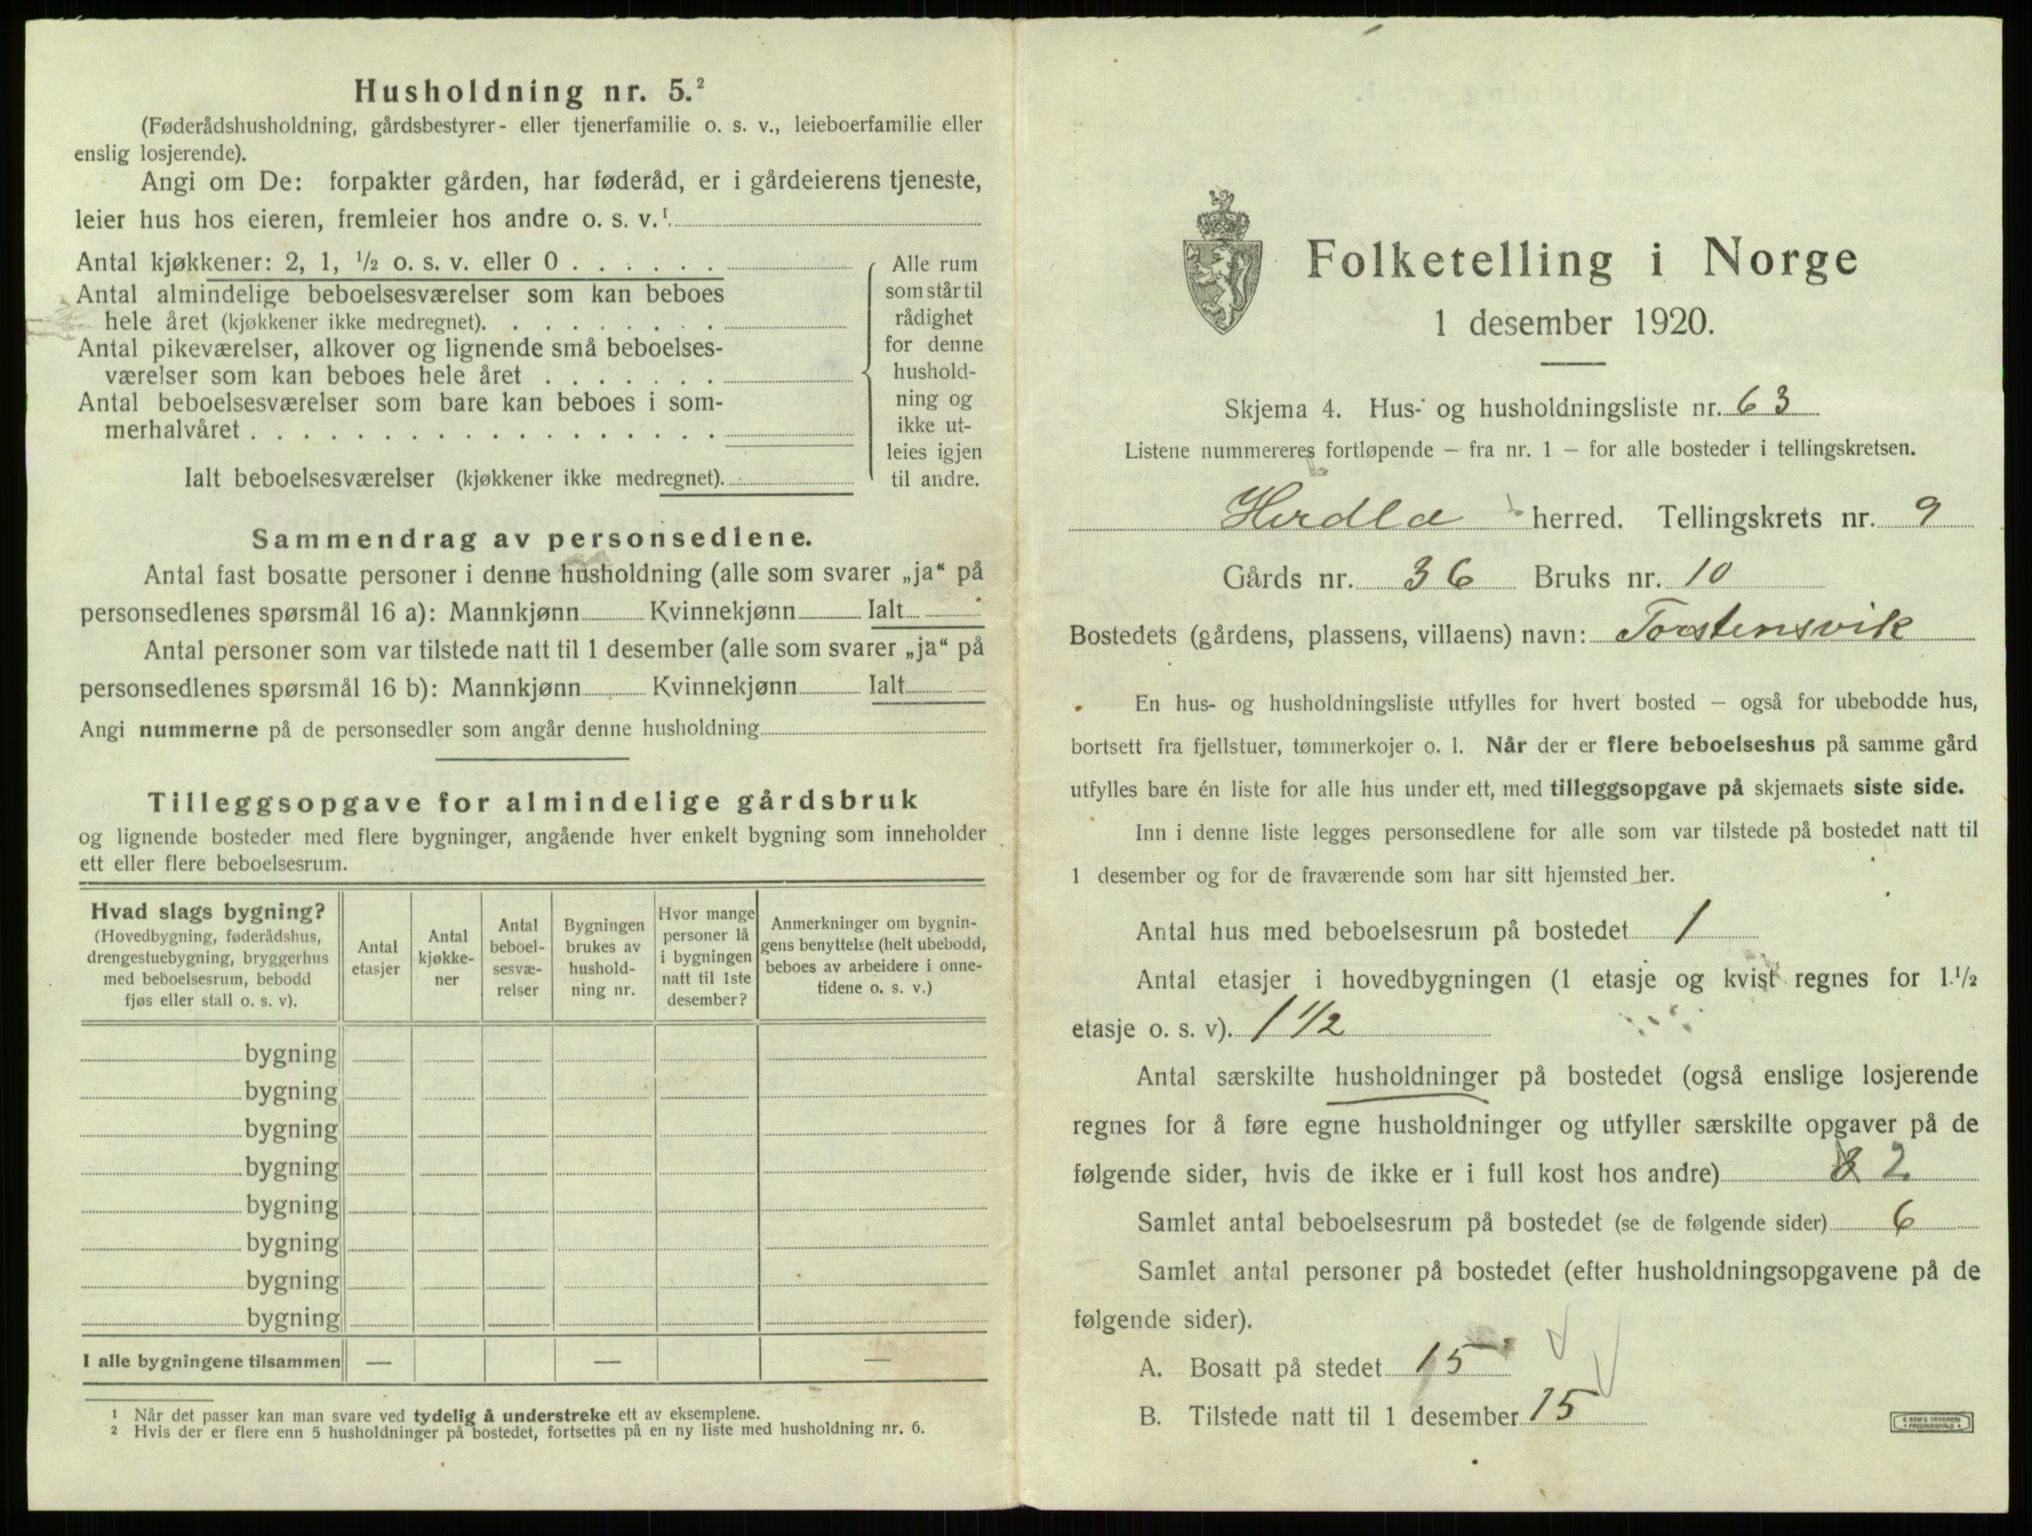 Husholdning nr. 5.²
(Føderådshusholdning, gårdsbestyrer- eller tjenerfamilie o. s. v., leieboerfamilie eller
enslig losjerende).
Angi om De: forpakter gården, har føderåd, er i gårdeierens tjeneste,
leier hus hos eieren, fremleier hos andre o. s. v.¹
Antal kjøkkener: 2, 1, ½ o. s. v. eller 0
Antal almindelige beboelsesværelser som kan beboes
hele året (kjøkkener ikke medregnet).
Antal pikeværelser, alkover og lignende små beboelses-
værelser som kan beboes hele året
Antal beboelsesværelser som bare kan beboes i som-
merhalvåret
Ialt beboelsesværelser (kjøkkener ikke medregnet).
Alle rum
som står til
rådighet
for denne
hushold-
ning og
ikke ut-
leies igjen
til andre.
Sammendrag av personsedlene.
Antal fast bosatte personer i denne husholdning (alle som svarer „ja“ på
personsedlenes spørsmål 16 a): Mannkjønn Kvinnekjønn Ialt
Antal personer som var tilstede natt til 1 desember (alle som svarer „ja“ på
personsedlenes spørsmål 16 b): Mannkjønn Kvinnekjønn Ialt
Angi nummerne på de personsedler som angår denne husholdning
Tilleggsopgave for almindelige gårdsbruk
og lignende bosteder med flere bygninger, angående hver enkelt bygning som inneholder
ett eller flere beboelsesrum.
Hvad slags bygning?
(Hovedbygning, føderådshus,
drengestuebygning, bryggerhus
med beboelsesrum, bebodd
fjøs eller stall o. s. v).
Antal
etasjer
Antal
kjøkke-
ner
Antal
beboel-
sesvæ-
relser
Bygningen
brukes av
hushold-
ning nr.
Hvor mange
personer lå
i bygningen
natt til 1ste
desember?
Anmerkninger om bygnin-
gens benyttelse (helt ubebodd,
beboes av arbeidere i onne-
tidene o. s. v.)
bygning
bygning
bygning
bygning
bygning
bygning
bygning
bygning
I alle bygningene tilsammen — — —
¹ Når det passer kan man svare ved tydelig å understreke ett av eksemplene.
² Hvis der er flere enn 5 husholdninger på bostedet, fortsettes på en ny liste med husholdning nr. 6.
Folketelling i Norge
1 desember 1920.
Skjema 4. Hus- og husholdningsliste nr. 63
Listene nummereres fortløpende — fra nr. 1 — for alle bosteder i tellingskretsen.
Herdla herred. Tellingskrets nr. 9
Gårds nr. 36 Bruks nr. 10
Bostedets (gårdens, plassens, villaens) navn: Torstensvik
En hus- og husholdningsliste utfylles for hvert bosted — også for ubebodde hus,
bortsett fra fjellstuer, tømmerkojer o. l. Når der er flere beboelseshus på samme gård
utfylles bare én liste for alle hus under ett, med tilleggsopgave på skjemaets siste side.
Inn i denne liste legges personsedlene for alle som var tilstede på bostedet natt til
1 desember og for de fraværende som har sitt hjemsted her.
Antal hus med beboelsesrum på bostedet 1
Antal etasjer i hovedbygningen (1 etasje og kvist regnes for 1½
etasje o. s. v). 1 ½
Antal særskilte husholdninger på bostedet (også enslige losjerende
regnes for å føre egne husholdninger og utfyller særskilte opgaver på de
følgende sider, hvis de ikke er i full kost hos andre) 2
Samlet antal beboelsesrum på bostedet (se de følgende sider) 6
Samlet antal personer på bostedet (efter husholdningsopgavene på de
følgende sider).
A. Bosatt på stedet 15
B. Tilstede natt til 1 desember 15
E. SEM'S TRYKKERI
FREDRIKSHALD